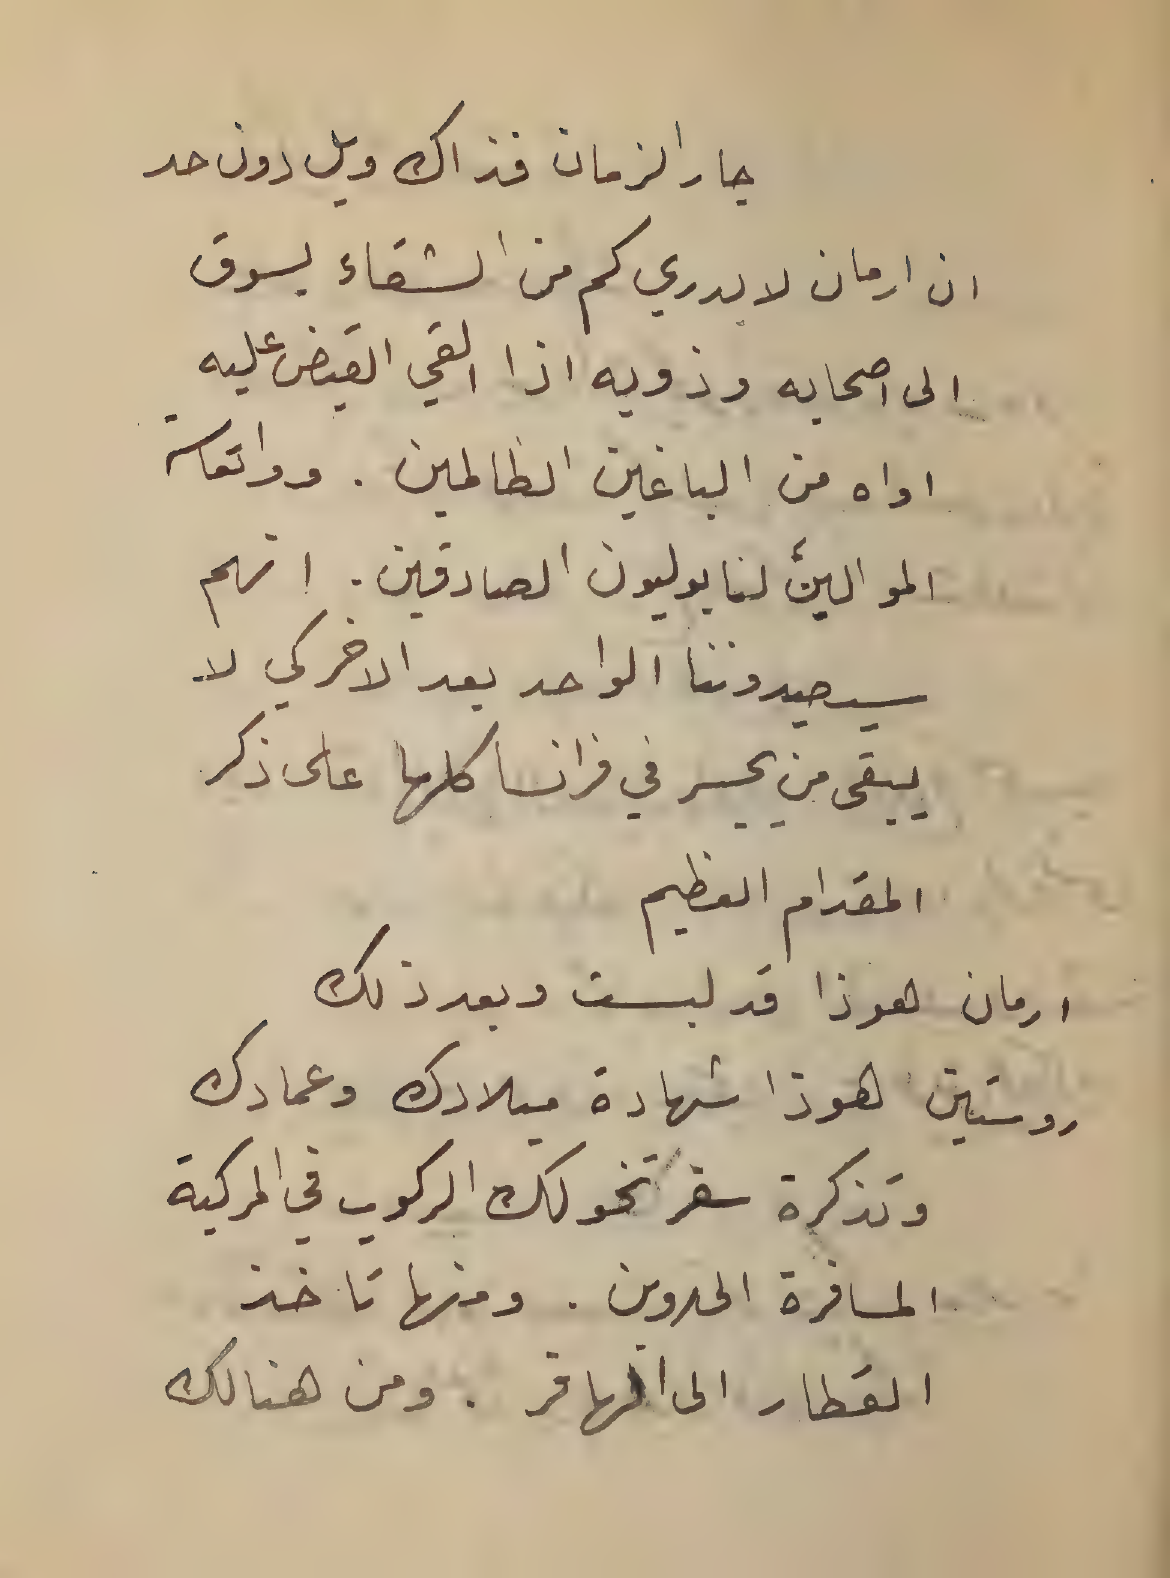 جار الزمان فذاك ويل دون حد
ان ارمان لا يدري كم من الشقاء يسوق
الى اصحابه وذويه اذا القي القبض عليه
اواه من الباغين الظالمين . وواتعاسة
الموالين لنابوليون الصادقين . انهم
سيصيدوننا الواحد بعد الاخر كي لا
يبقى من يجسر في فرانسا كلها على ذكر
المقدام العظيم
ارمان هوذا قد لبست وبعد ذلك
روستين هوذا شهادة ميلادك وعمادك
وتذكرة سفر تخولك الركوب في المركبة
المسافرة الى روين . ومنها تاخذ
القطار الى الهافر . ومن هنالك